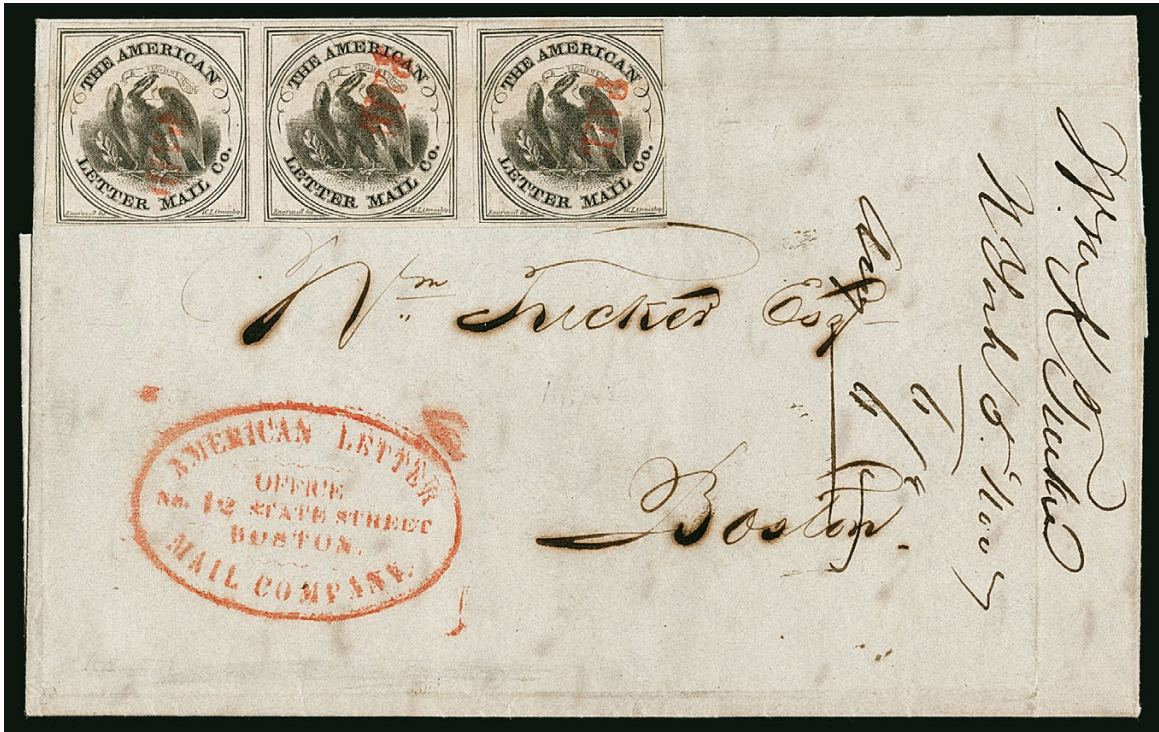 THE AMERICAN
LETTER MAIL Co.
Engraved by W.L. Ormsby
THE AMERICAN
LETTER MAIL Co.
Engraved by W.L. Ormsby
THE AMERICAN
LETTER MAIL Co.
Engraved by W.L. Ormsby
PAID
PAID
Wm Tucker Esq
Boston.
AMERICAN LETTER
OFFICE
No. 12 STATE STREET
BOSTON.
MAIL COMPANY.
Wm K Tucker